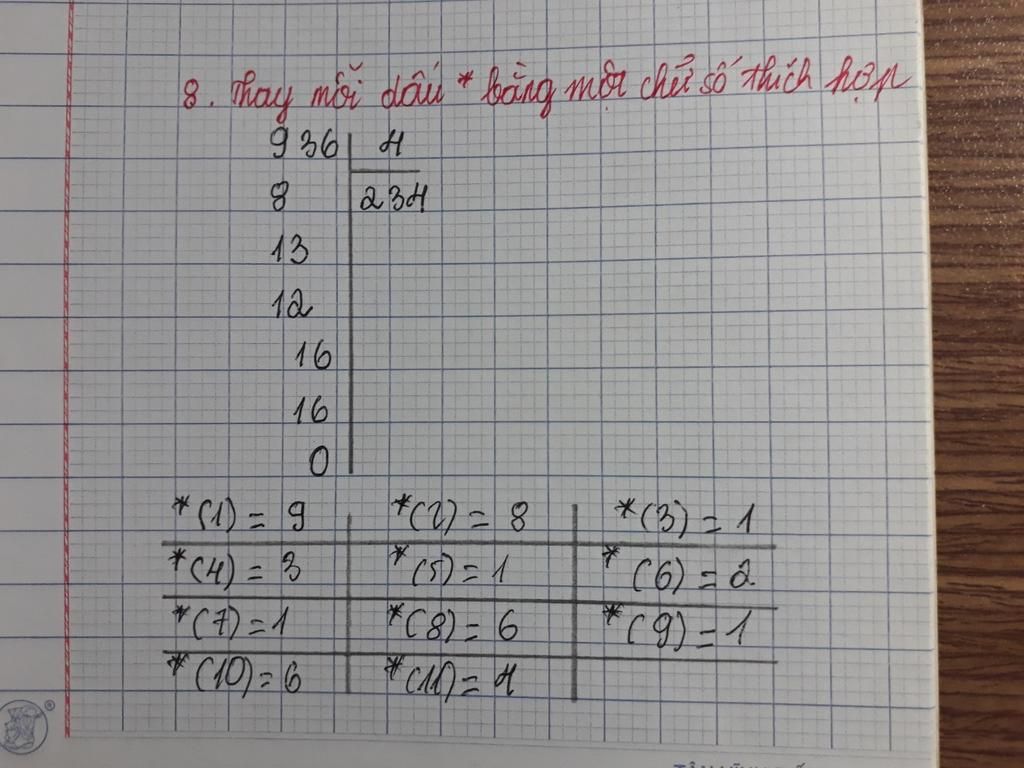 8. Thay mỗi dấu * bằng một chữ số thích hợp
936 4
8 234
13
12
16
16
0
*(1) = 9 *(2) = 8 *(3) = 1
*(4) = 3 *(5) = 1 *(6) = 2
*(7) = 1 *(8) = 6 *(9) = 1
*(10) = 6 *(11) = 4